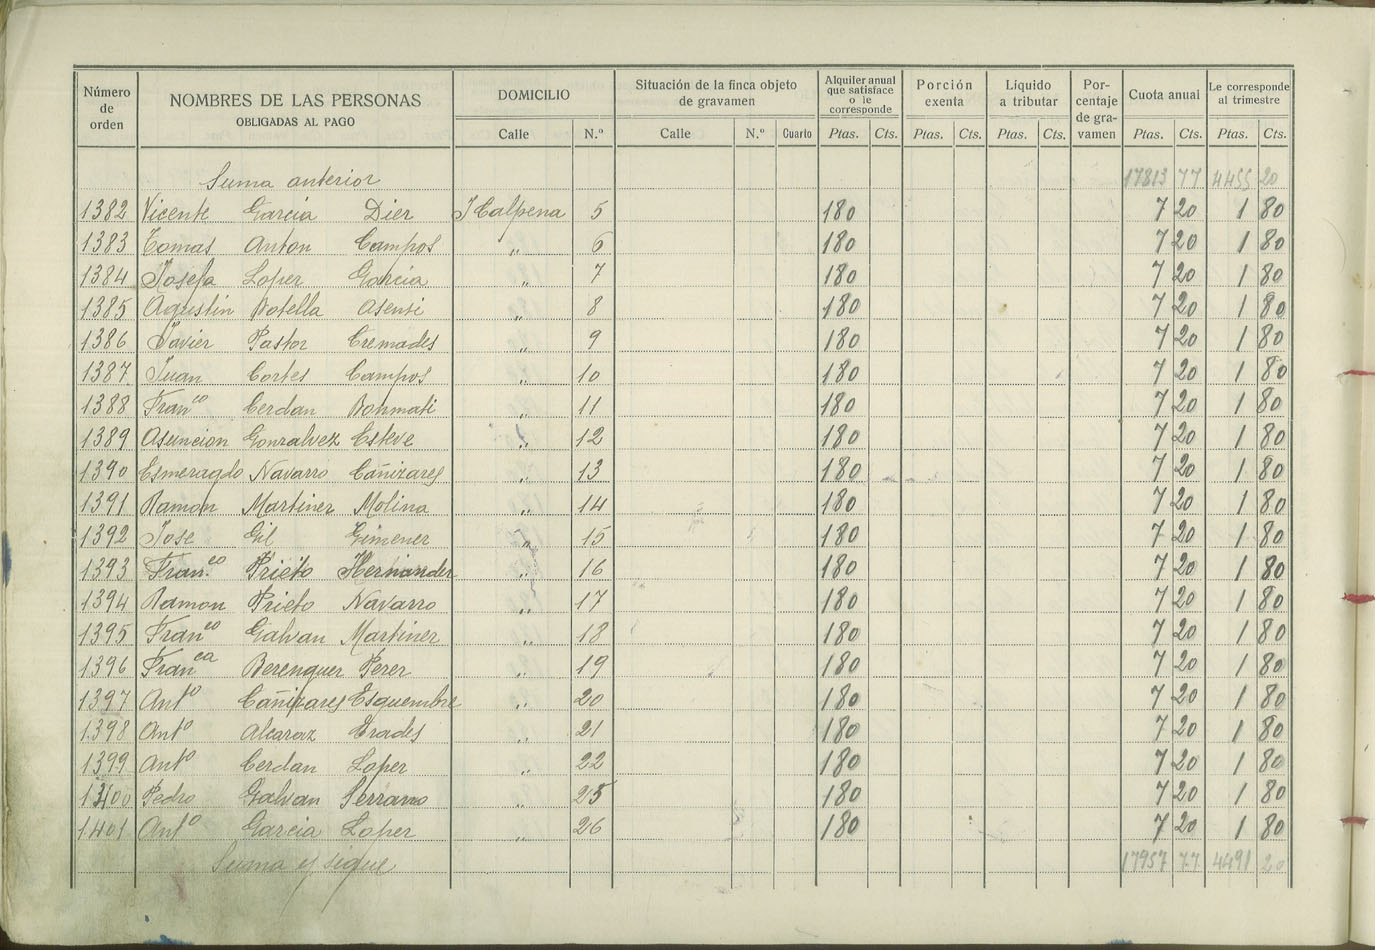 Número de orden NOMBRES DE LAS PERSONAS OBLIGADAS AL PAGO DOMICILIO Situación de la finca objeto de gravamen Alquiler anual que satisface o le corresponde Porción exenta Líquido a tributar Por-centaje de gra-vamen Cuota anual Le corresponde al trimestre
Calle N.º Calle N.º Cuarto Ptas. Cts. Ptas. Cts. Ptas. Cts. Ptas. Cts. Ptas. Cts.
Suma anterior 17813 77 4455 20
1382 Vicente Garcia Dier J Calpena 5 180 7 20 1 80
1383 Tomas Anton Campos „ 6 180 7 20 1 80
1384 Josefa Loper Garcia „ 7 180 7 20 1 80
1385 Agustin Botella Asensi „ 8 180 7 20 1 80
1386 Javier Pastor Cremades „ 9 180 7 20 1 80
1387 Juan Cortes Campos „ 10 180 7 20 1 80
1388 Franco Cerdan Bonmati „ 11 180 7 20 1 80
1389 Asuncion Gonzalvez Esteve „ 12 180 7 20 1 80
1390 Esmeragdo Navarro Cañizares „ 13 180 7 20 1 80
1391 Ramon Martiner Molina „ 14 180 7 20 1 80
1392 Jose Gil Gimener „ 15 180 7 20 1 80
1393 Fran.co Prieto Hernander „ 16 180 7 20 1 80
1394 Ramon Prieto Navarro „ 17 180 7 20 1 80
1395 Franco Galvan Martiner „ 18 180 7 20 1 80
1396 Franca Berenguer Perer „ 19 180 7 20 1 80
1397 Anto Cañizares Esquembre „ 20 180 7 20 1 80
1398 Anto Alcaraz Prades „ 21 180 7 20 1 80
1399 Anto Cerdan Loper „ 22 180 7 20 1 80
1400 Pedro Galvan Serrano „ 25 180 7 20 1 80
1401 Anto Garcia Loper „ 26 180 7 20 1 80
Suma y sigue 17957 77 4491 20